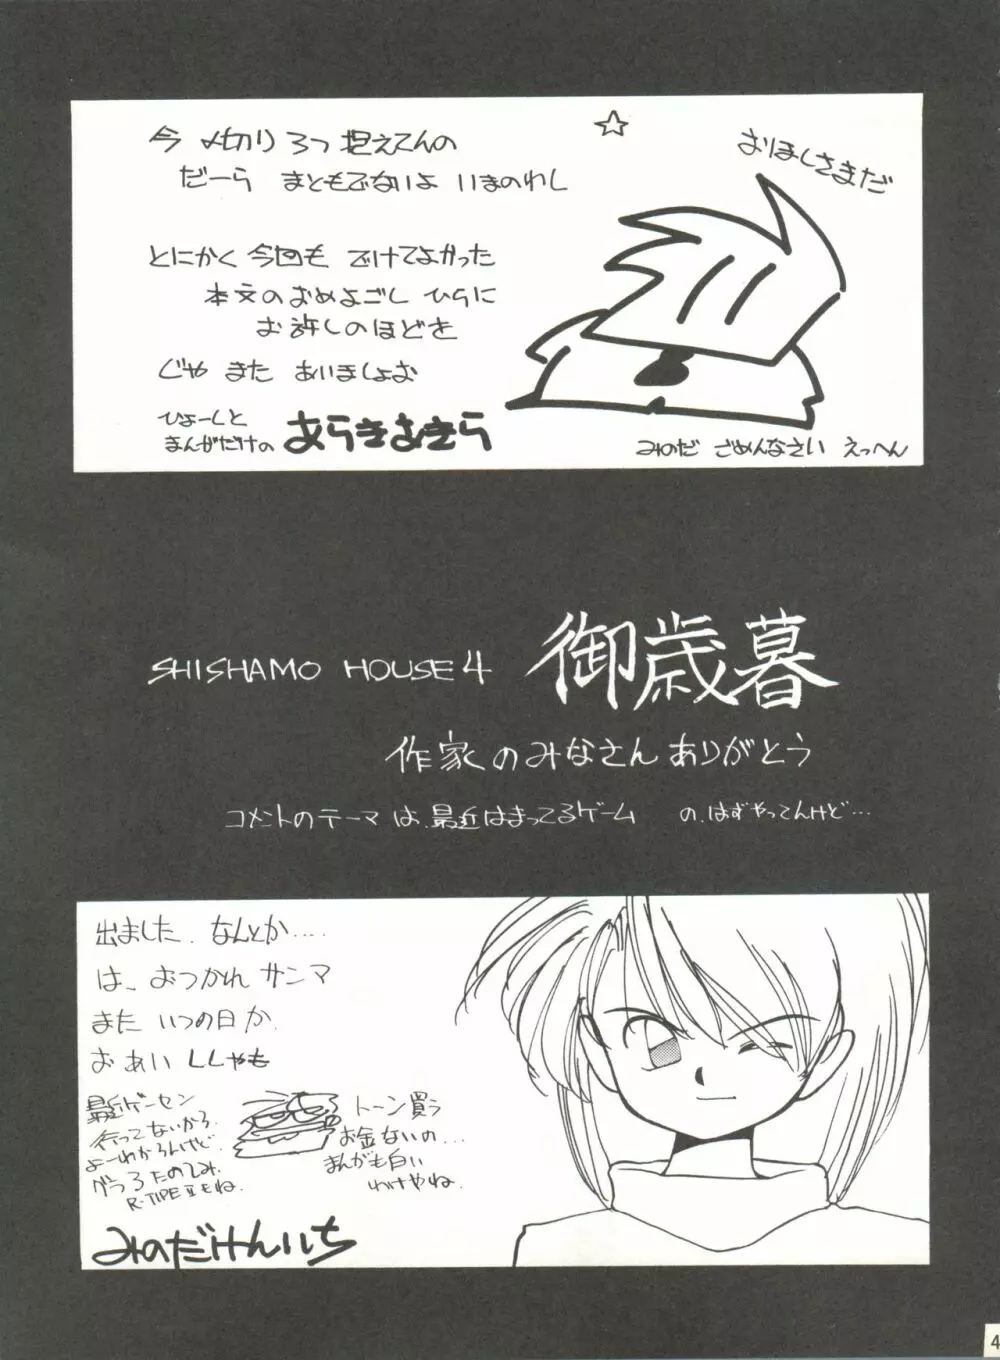 今 〆切り 3つ 抱えてんの
だーら まともでないよ いまのわし
とにかく 今回も でけてよかった
本文のおめよごし ひらに
お許しのほどを
じゃ また あいましょお
ひょーしと
まんがだけの あらきあきら
☆
おりほしさまだ
みのだ ごめんなさい えっへん
SHISHAMO HOUSE 4 御歳暮
作家のみなさん ありがとう
コメントのテーマは、最近はまってるゲーム の、はずやってんけど…
出ました、なんとか……
は、おつかれ サンマ
また いつの日か、
お あい ししゃも
最近ゲーセン
行ってないから、
よーわからんけど
グラ3たのしみ、
R-TYPE IIもね、
トーン買う
お金ないの…
まんがも白い
わけやね、
みのだけんいち
4